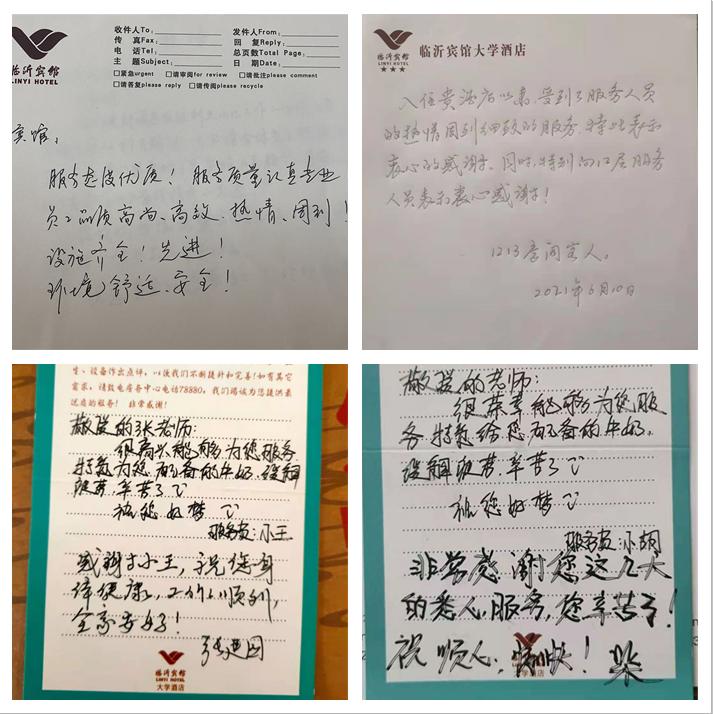 临沂宾馆
LINYI HOTEL
收件人To:
发件人From:
传 真Fax:
回 复Reply:
电 话Tel:
总页数Total Page:
主 题Subject:
日 期Date:
□紧急urgent □请审阅for review □请批注please comment
□请答复please reply □请传阅please recycle
宾馆,
服务态度优质！服务质量认真专业
员工品质高尚、高效、热情、周到！
设施齐全！先进！
环境舒适、安全！
临沂宾馆
临沂宾馆大学酒店
入住贵酒店以来,受到了服务人员
的热情周到细致的服务,特此表示
衷心的感谢。同时,特别向12层服务
人员表示衷心感谢！
1213房间客人。
2021年6月10日
生、设备作出点评，以使我们不断提升和完善!如有其它
需求，请致电房务中心电话78880，我们竭诚为您提供最
优质的服务！ 非常感谢！
敬爱的张老师:
很高兴能够为您服务
特意为您准备的牛奶,缓解
疲劳,辛苦了
祝您好梦
服务员:小王
感谢小王,祝您身
体健康,工作顺利,
全家安好！
临沂宾馆
LINYI HOTEL
大学酒店
敬爱的老师:
很荣幸能够为您服
务,特意给您准备的牛奶,
缓解疲劳,辛苦了
祝您好梦
服务员:小胡
非常感谢您这几天
的悉心服务,您辛苦了！
祝顺心,愉快！
临沂宾馆
LINYI HOTEL
大学酒店